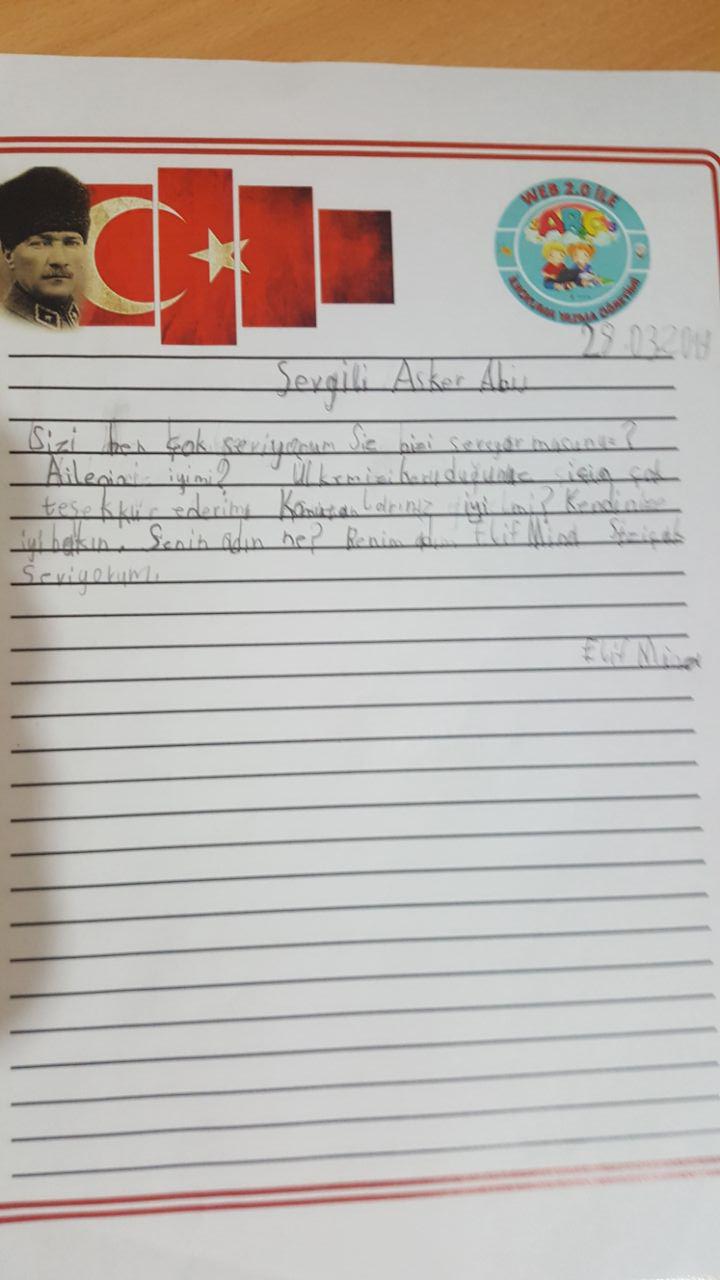 WEB 2.0 İLE
ABC
OKUMA YAZMA ÖĞRETİMİ
29.03.2018
Sevgili Asker Abi
Sizi ben çok seviyorum Siz bizi seviyor musunuz?
Aileniz iyimi? Ülkemizi koruduğunuz için çok
teşekkür ederim. Komutanlarınız iyi mi? Kendinize
iyi bakın. Senin adın ne? Benim adım Elif Mina Sizi çok
Seviyorum.
Elif Mina